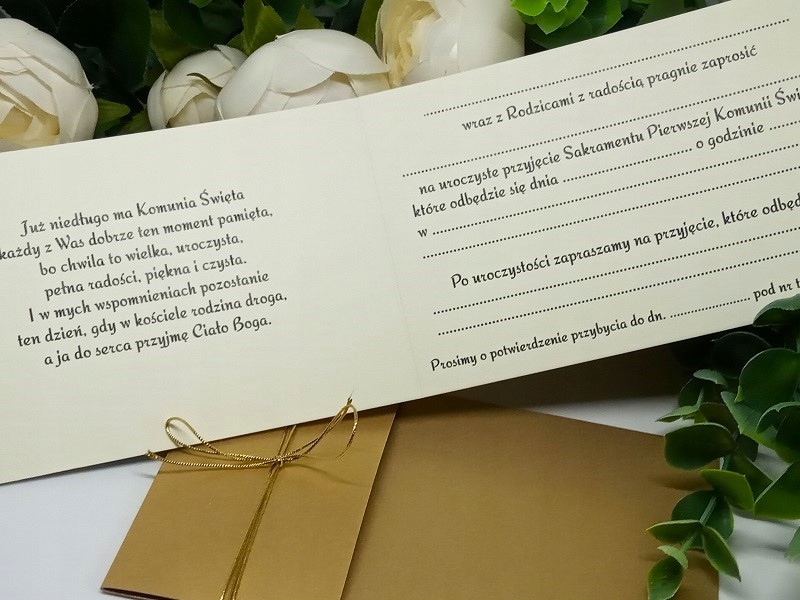 Już niedługo ma Komunia Święta
każdy z Was dobrze ten moment pamięta,
bo chwila to wielka, uroczysta,
pełna radości, piękna i czysta.
I w mych wspomnieniach pozostanie
ten dzień, gdy w kościele rodzina droga,
a ja do serca przyjmę Ciało Boga.
wraz z Rodzicami z radością pragnie zaprosić
na uroczyste przyjęcie Sakramentu Pierwszej Komunii Świ
które odbędzie się dnia ........................ o godzinie ........
w
Po uroczystości zapraszamy na przyjęcie, które odbęd
Prosimy o potwierdzenie przybycia do dn. ................ pod nr t